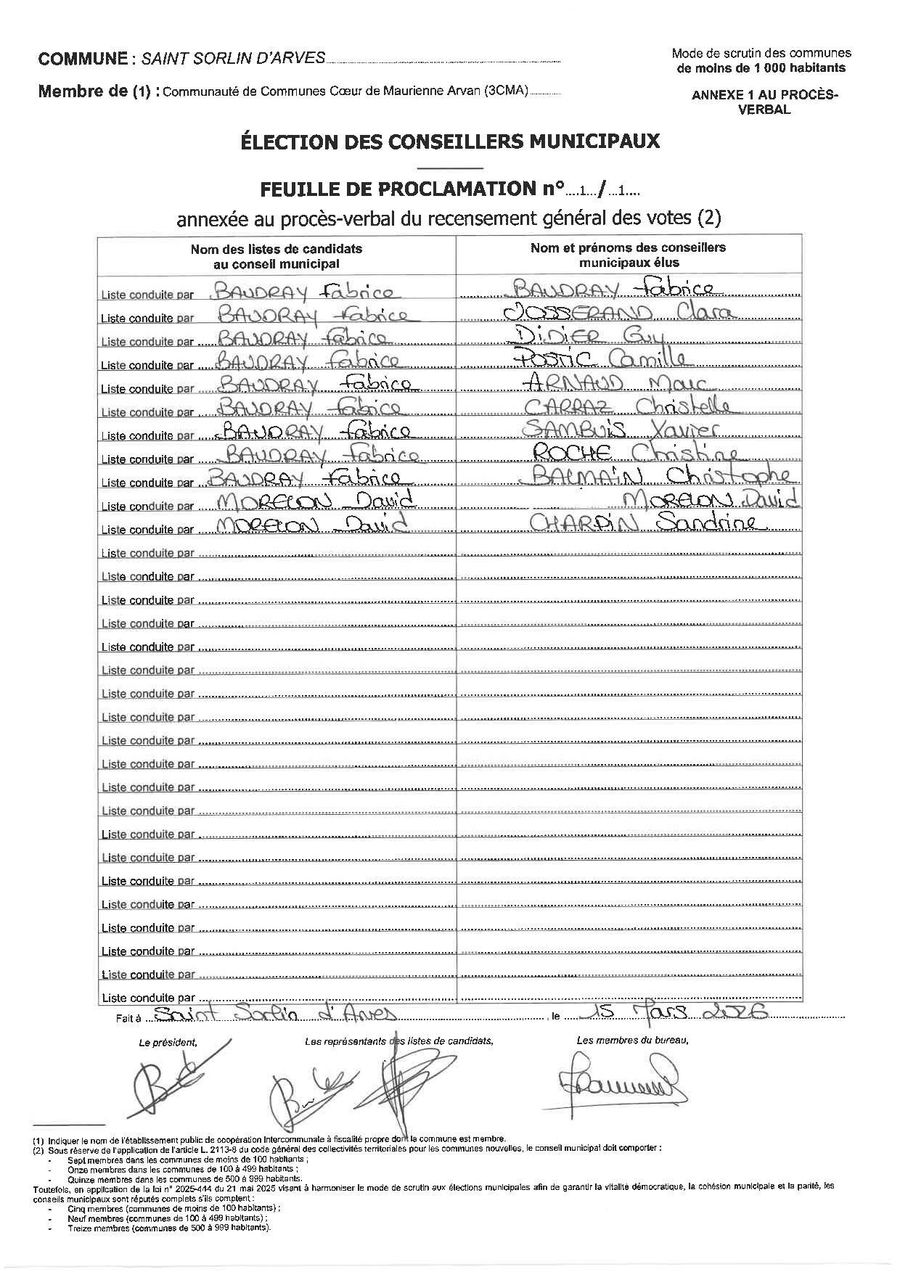 COMMUNE : SAINT SORLIN D'ARVES
Mode de scrutin des communes
de moins de 1 000 habitants
Membre de (1) : Communauté de Communes Cœur de Maurienne Arvan (3CMA)
ANNEXE 1 AU PROCÈS-
VERBAL
ÉLECTION DES CONSEILLERS MUNICIPAUX
FEUILLE DE PROCLAMATION n°....1.../...1....
annexée au procès-verbal du recensement général des votes (2)
Nom des listes de candidats
au conseil municipal
Nom et prénoms des conseillers
municipaux élus
Liste conduite par BAUDRAY Fabrice BAUDRAY Fabrice
Liste conduite par BAUDRAY Fabrice JOSSERAND Clara
Liste conduite par BAUDRAY Fabrice DIDIER Guy
Liste conduite par BAUDRAY Fabrice POSTIC Camille
Liste conduite par BAUDRAY Fabrice ARNAUD Marc
Liste conduite par BAUDRAY Fabrice CARRAZ Christelle
Liste conduite par BAUDRAY Fabrice SAMBUIS Xavier
Liste conduite par BAUDRAY Fabrice ROCHE Christine
Liste conduite par BAUDRAY Fabrice BALMAIN Christophe
Liste conduite par MORELON David MORELON David
Liste conduite par MORELON David CHARDIN Sandrine
Liste conduite par
Liste conduite par
Liste conduite par
Liste conduite par
Liste conduite par
Liste conduite par
Liste conduite par
Liste conduite par
Liste conduite par
Liste conduite par
Liste conduite par
Liste conduite par
Liste conduite par
Liste conduite par
Liste conduite par
Liste conduite par
Liste conduite par
Liste conduite par
Liste conduite par
Liste conduite par
Fait à Saint Sorlin d'Arves, le 15 Mars 2026
Le président,
Les représentants des listes de candidats,
Les membres du bureau,
(1) Indiquer le nom de l'établissement public de coopération intercommunale à fiscalité propre dont la commune est membre.
(2) Sous réserve de l'application de l'article L. 2113-8 du code général des collectivités territoriales pour les communes nouvelles, le conseil municipal doit comporter :
- Sept membres dans les communes de moins de 100 habitants ;
- Onze membres dans les communes de 100 à 499 habitants ;
- Quinze membres dans les communes de 500 à 999 habitants.
Toutefois, en application de la loi n° 2025-444 du 21 mai 2025 visant à harmoniser le mode de scrutin aux élections municipales afin de garantir la vitalité démocratique, la cohésion municipale et la parité, les
conseils municipaux sont réputés complets s'ils comptent :
- Cinq membres (communes de moins de 100 habitants) ;
- Neuf membres (communes de 100 à 499 habitants) ;
- Treize membres (communes de 500 à 999 habitants).